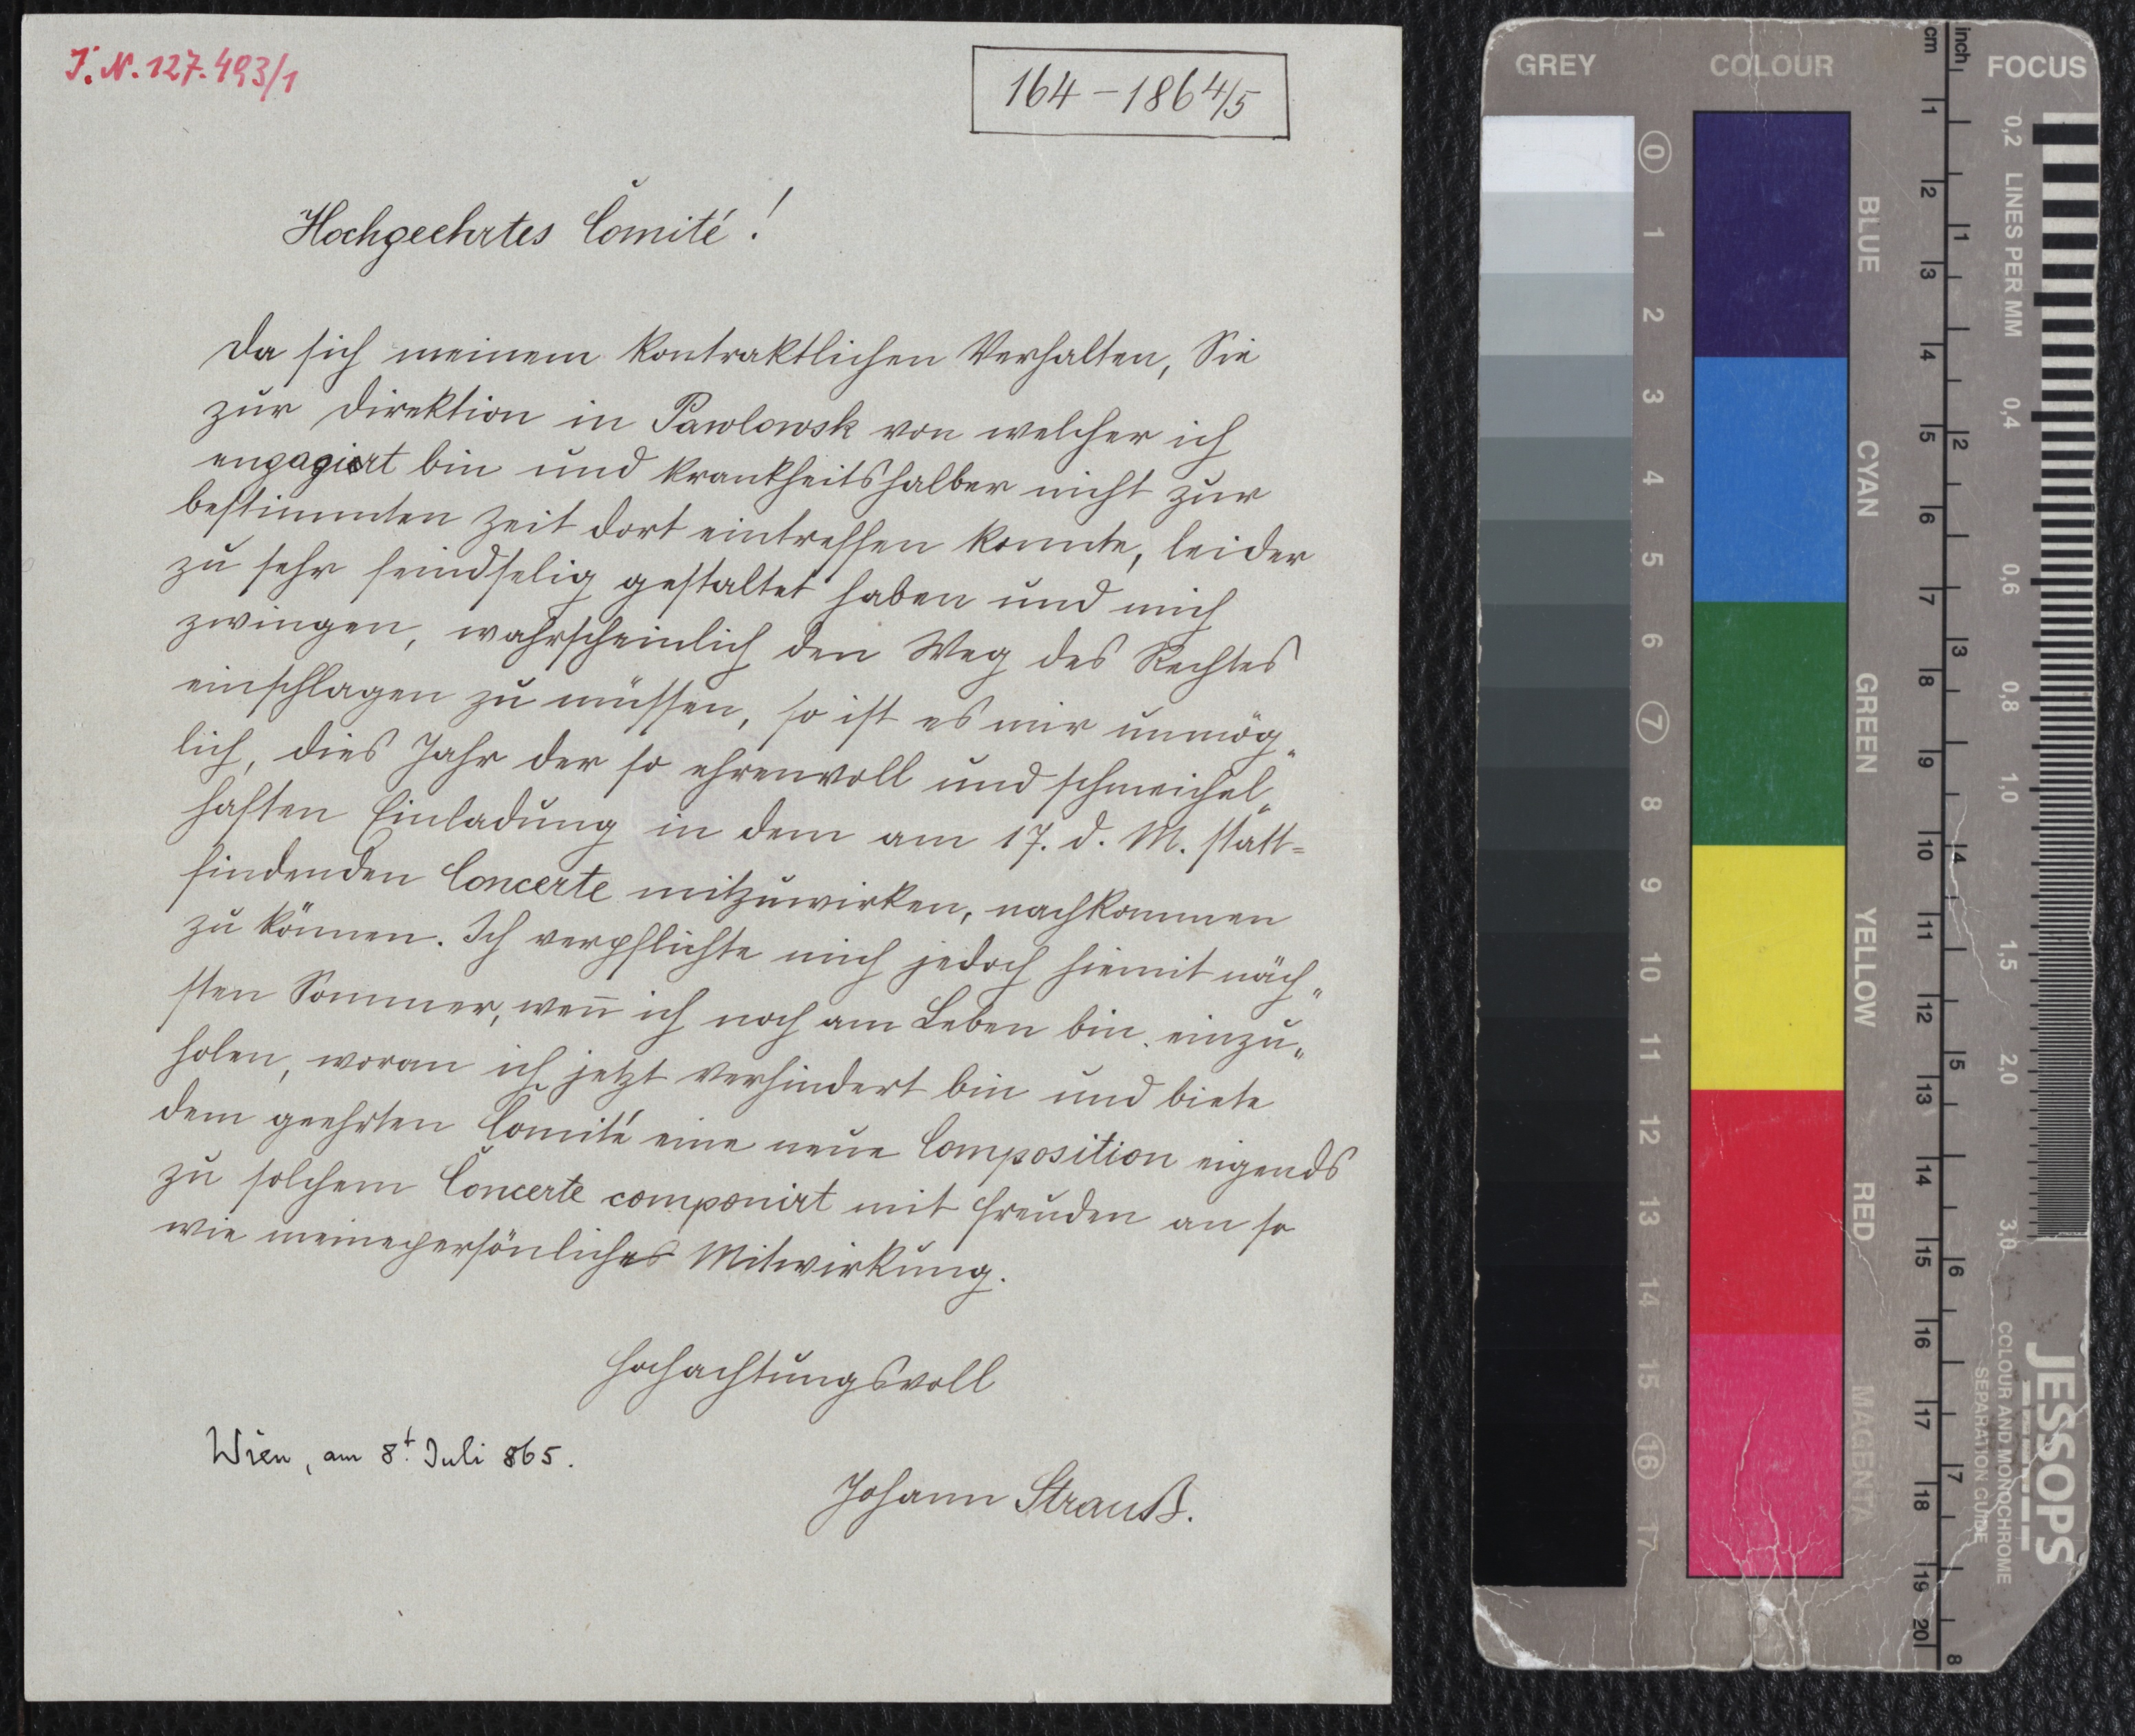 J. N. 127.493/1
164-1864/5
Hochgeehrtes Comité!
Da sich meinem kontraktlichen Verhalten, Sie
zur Direktion in Pawlowsk von welcher ich
engagiert bin und krankheitshalber nicht zur
bestimmten Zeit dort eintreffen konnte, leider
zu sehr feindselig gestaltet haben und mich
zwingen, wahrscheinlich den Weg des Rechtes
einschlagen zu müssen, so ist es mir unmög„
lich, dies Jahr der so ehrenvoll und schmeichel„
haften Einladung in dem am 17. d. M. statt=
findenden Concerte mitzuwirken, nachkommen
zu können. Ich verpflichte mich jedoch hiemit näch„
sten Sommer, wen̄ ich noch am Leben bin einzu„
holen, woran ich jetzt verhindert bin und biete
dem geehrten Comité eine neue Composition eigends
zu solchem Concerte componirt mit Freuden an so
wie meine persönliches Mitwirkung.
Hochachtungsvoll
Wien, am 8t. Juli 865.
Johann Strauß.
GREY
COLOUR
FOCUS
cm
inch
0 1 2 3 4 5 6 7 8 9 10 11 12 13 14 15 16 17
BLUE
CYAN
GREEN
YELLOW
RED
MAGENTA
1 2 3 4 5 6 7 8 9 10 11 12 13 14 15 16 17 18 19 20
1 2 3 4 5 6 7 8
0,2 LINES PER MM 0,4 0,6 0,8 1,0 1,5 2,0 3,0
JESSOPS
COLOUR AND MONOCHROME
SEPARATION GUIDE